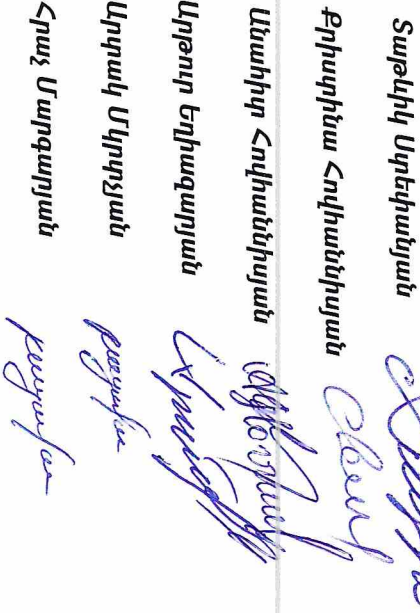 Տաթևիկ Ստեփանյան
Քրիստինա Հովհաննիսյան
Անահիտ Հովհաննիսյան
Արթուր Եղիազարյան
Արտակ Մկրտչյան բացակա
Հրաչ Մարգարյան բացակա